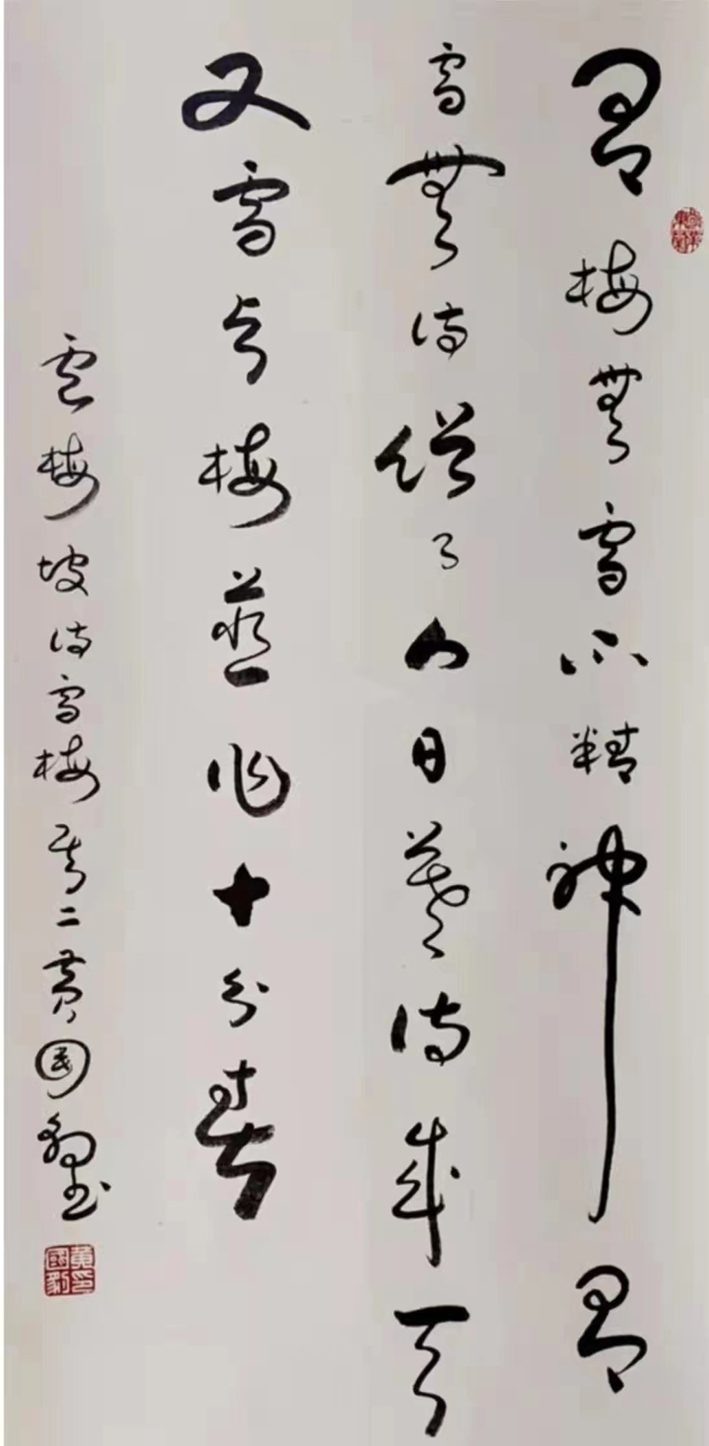 有梅無雪不精神有
雪無詩俗了人日暮詩成天
又雪与梅並作十分春
盧梅坡詩雪梅其二黄國豹書
黃印國豹